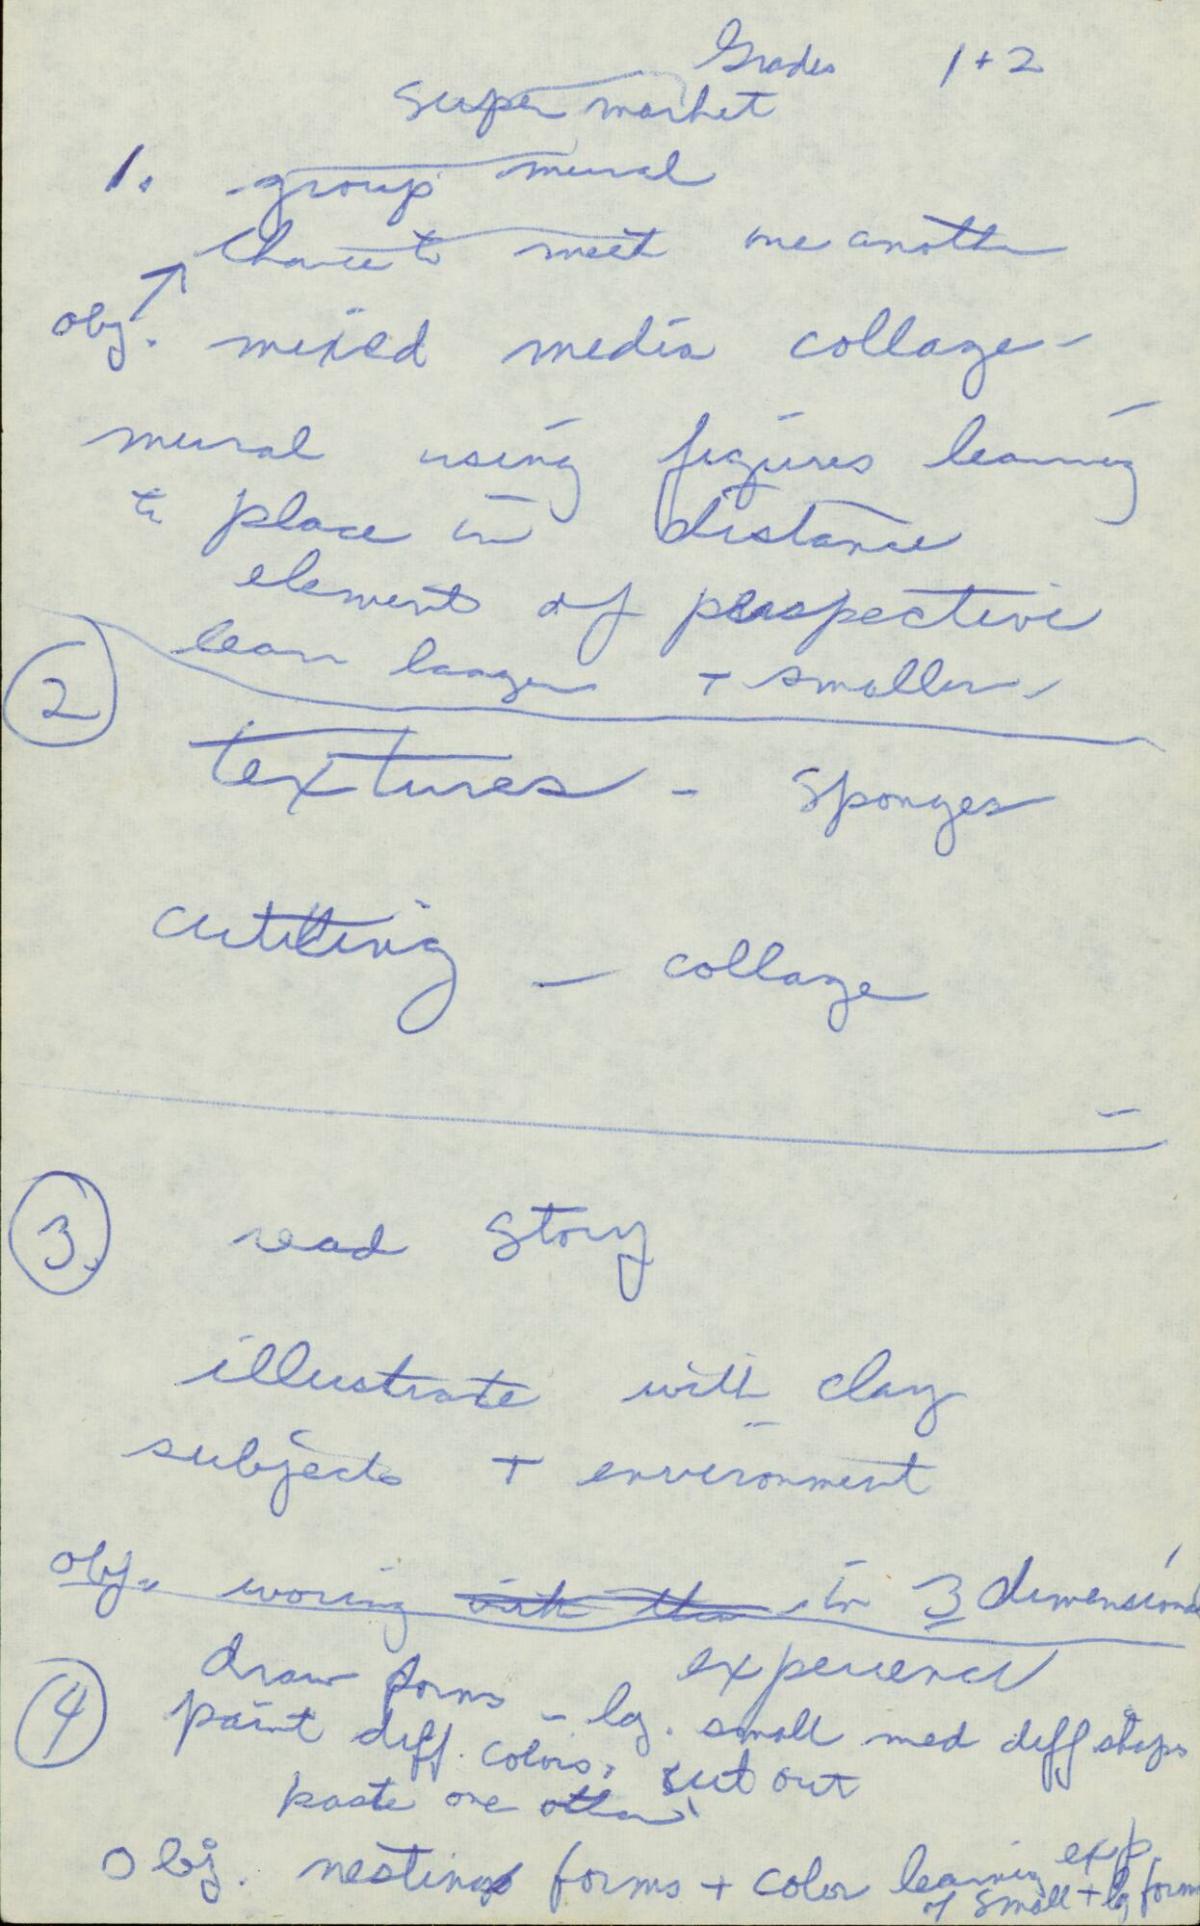 Grades 1+2
Super market
1. group mural
Chance to meet one another
obj. mixed media collage -
mural using figures learning
to place in distance
elements of perspective
learn larger + smaller
2
textures - sponges
cutting - collage
3. read story
illustrate with clay
subjects + environment
obj. woring with them in 3 dimensional
experience
4 draw forms - lg. small med diff shaps
paint diff. colors, cut out
paste one other
Obj. nesting forms + color learning exp.
of small + lg forms